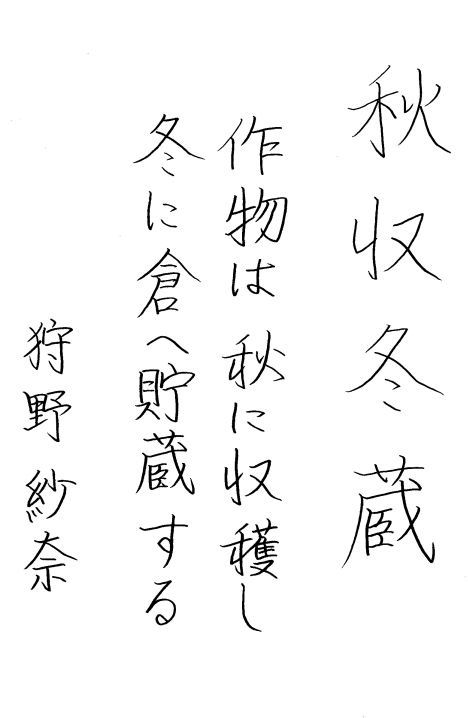 秋収冬蔵
作物は秋に収穫し
冬に倉へ貯蔵する
狩野紗奈